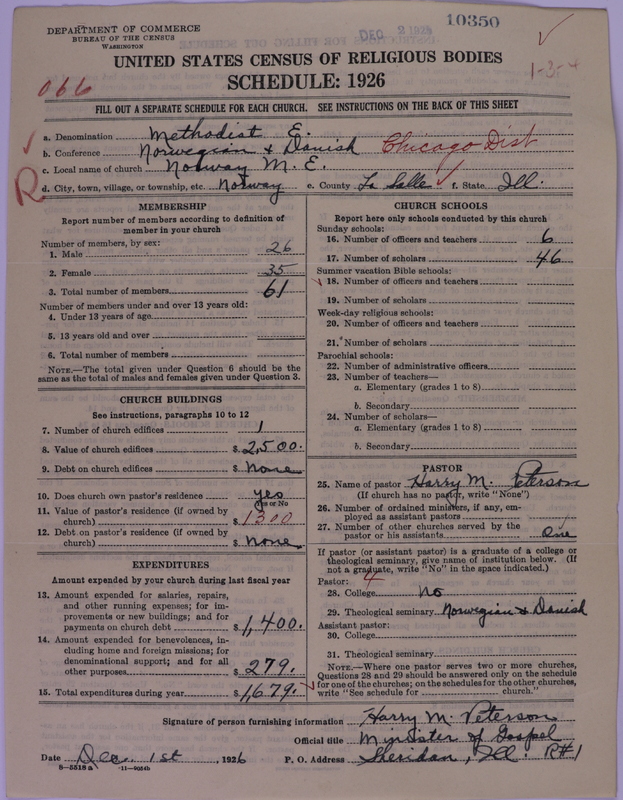 DEPARTMENT OF COMMERCE
BUREAU OF THE CENSUS
WASHINGTON
DEC 2 1926
10350
066
1-3-4
UNITED STATES CENSUS OF RELIGIOUS BODIES
SCHEDULE: 1926
FILL OUT A SEPARATE SCHEDULE FOR EACH CHURCH. SEE INSTRUCTIONS ON THE BACK OF THIS SHEET
a. Denomination Methodist E.
b. Conference Norwegian & Danish Chicago Dist
c. Local name of church Norway M. E.
R d. City, town, village, or township, etc. Norway e. County La Salle f. State Ill.
MEMBERSHIP
Report number of members according to definition of member in your church
Number of members, by sex:
1. Male 26
2. Female 35
3. Total number of members 61
Number of members under and over 13 years old:
4. Under 13 years of age
5. 13 years old and over
6. Total number of members
NOTE.—The total given under Question 6 should be the same as the total of males and females given under Question 3.
CHURCH BUILDINGS
See instructions, paragraphs 10 to 12
7. Number of church edifices 1
8. Value of church edifices $ 2,500.
9. Debt on church edifices $ None
10. Does church own pastor's residence yes
Yes or No
11. Value of pastor's residence (if owned by church) $ 1300
12. Debt on pastor's residence (if owned by church) $ None
EXPENDITURES
Amount expended by your church during last fiscal year
13. Amount expended for salaries, repairs, and other running expenses; for improvements or new buildings; and for payments on church debt $ 1,400.
14. Amount expended for benevolences, including home and foreign missions; for denominational support; and for all other purposes $ 279.
15. Total expenditures during year $ 1,679.
CHURCH SCHOOLS
Report here only schools conducted by this church
Sunday schools:
16. Number of officers and teachers 6
17. Number of scholars 46
Summer vacation Bible schools:
18. Number of officers and teachers
19. Number of scholars
Week-day religious schools:
20. Number of officers and teachers
21. Number of scholars
Parochial schools:
22. Number of administrative officers
23. Number of teachers—
a. Elementary (grades 1 to 8)
b. Secondary
24. Number of scholars—
a. Elementary (grades 1 to 8)
b. Secondary
PASTOR
25. Name of pastor Harry M. Peterson
(If church has no pastor, write "None")
26. Number of ordained ministers, if any, employed as assistant pastors
27. Number of other churches served by the pastor or his assistants One
If pastor (or assistant pastor) is a graduate of a college or theological seminary, give name of institution below. (If not a graduate, write "No" in the space indicated.)
Pastor: 4
28. College No
29. Theological seminary Norwegian & Danish
Assistant pastor:
30. College
31. Theological seminary
NOTE.—Where one pastor serves two or more churches, Questions 28 and 29 should be answered only on the schedule for one of the churches; on the schedules for the other churches, write "See schedule for church."
Signature of person furnishing information Harry M. Peterson
Official title Minister of Gospel
Date Dec. 1st, 1926 P. O. Address Sheridan, Ill. R#1
8—5318 a 11—9054b